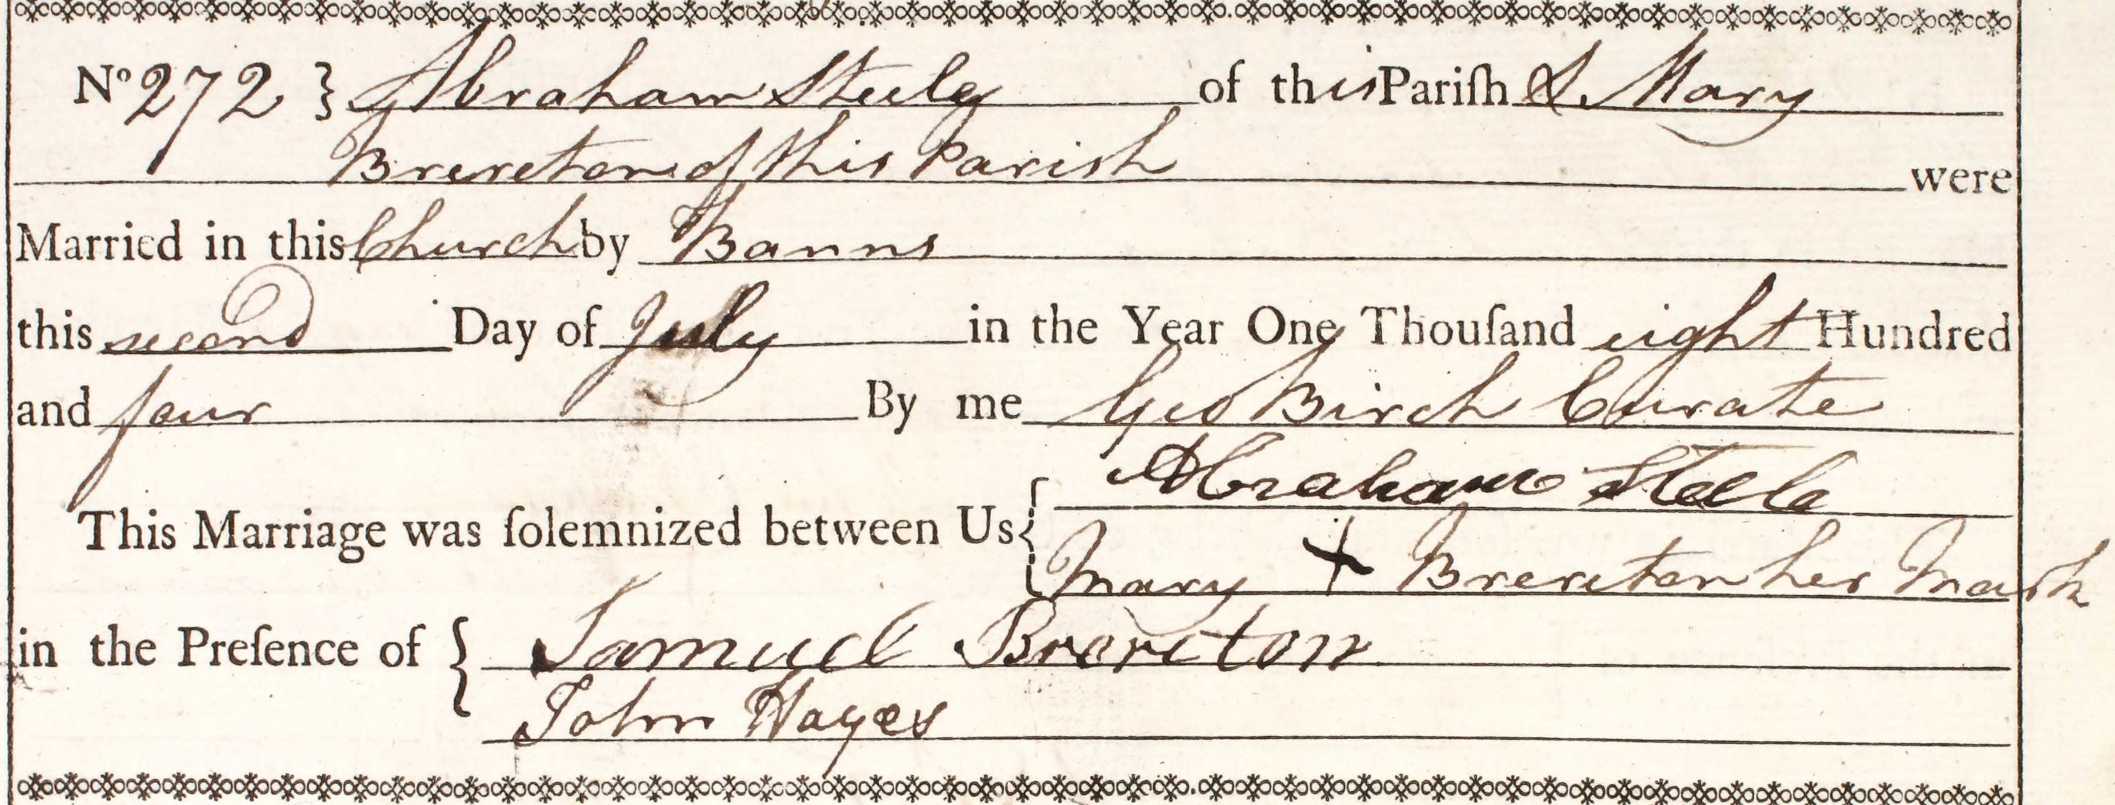 No 272 } Abraham Steely of this Pariſh & Mary
Brereton of this Parish were
Married in this Church by Banns
this second Day of July in the Year One Thouſand eight Hundred
and four By me Geo Birch Curate
Abraham Steele
This Marriage was ſolemnized between Us {
Mary + Brereton her Mark
in the Preſence of { Samuel Brereton
John Hayes